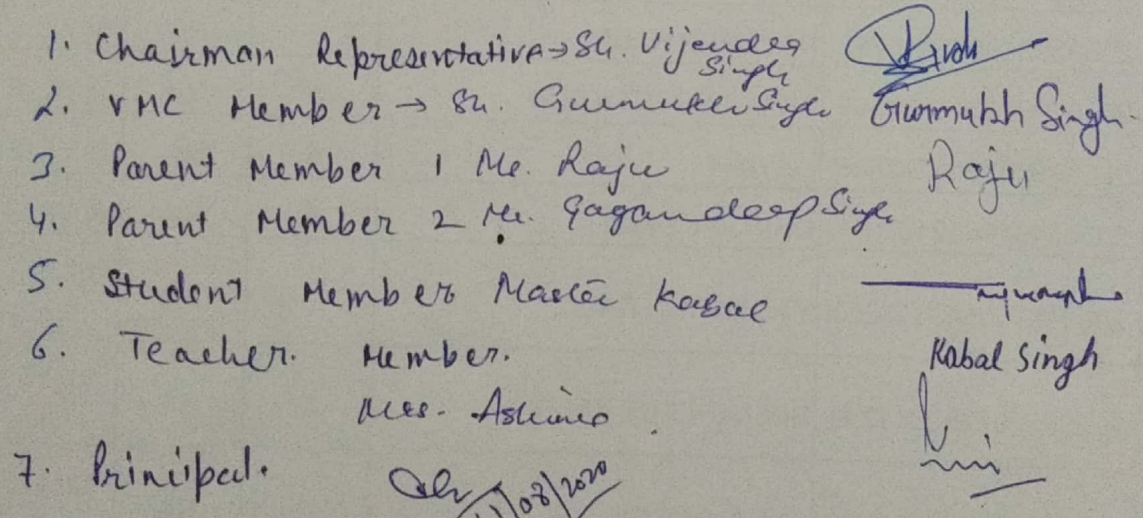 1. Chairman Representative → Sh. Vijendra Singh
2. VMC Member → Sh. Gurmukh Singh Gurmukh Singh.
3. Parent Member 1 Mr. Raju Raju
4. Parent Member 2 Mr. Gagandeep Singh
5. Student Member Master Kabal
6. Teacher. Member. Kabal Singh
Mrs. Ashima
7. Principal.
11/08/2020